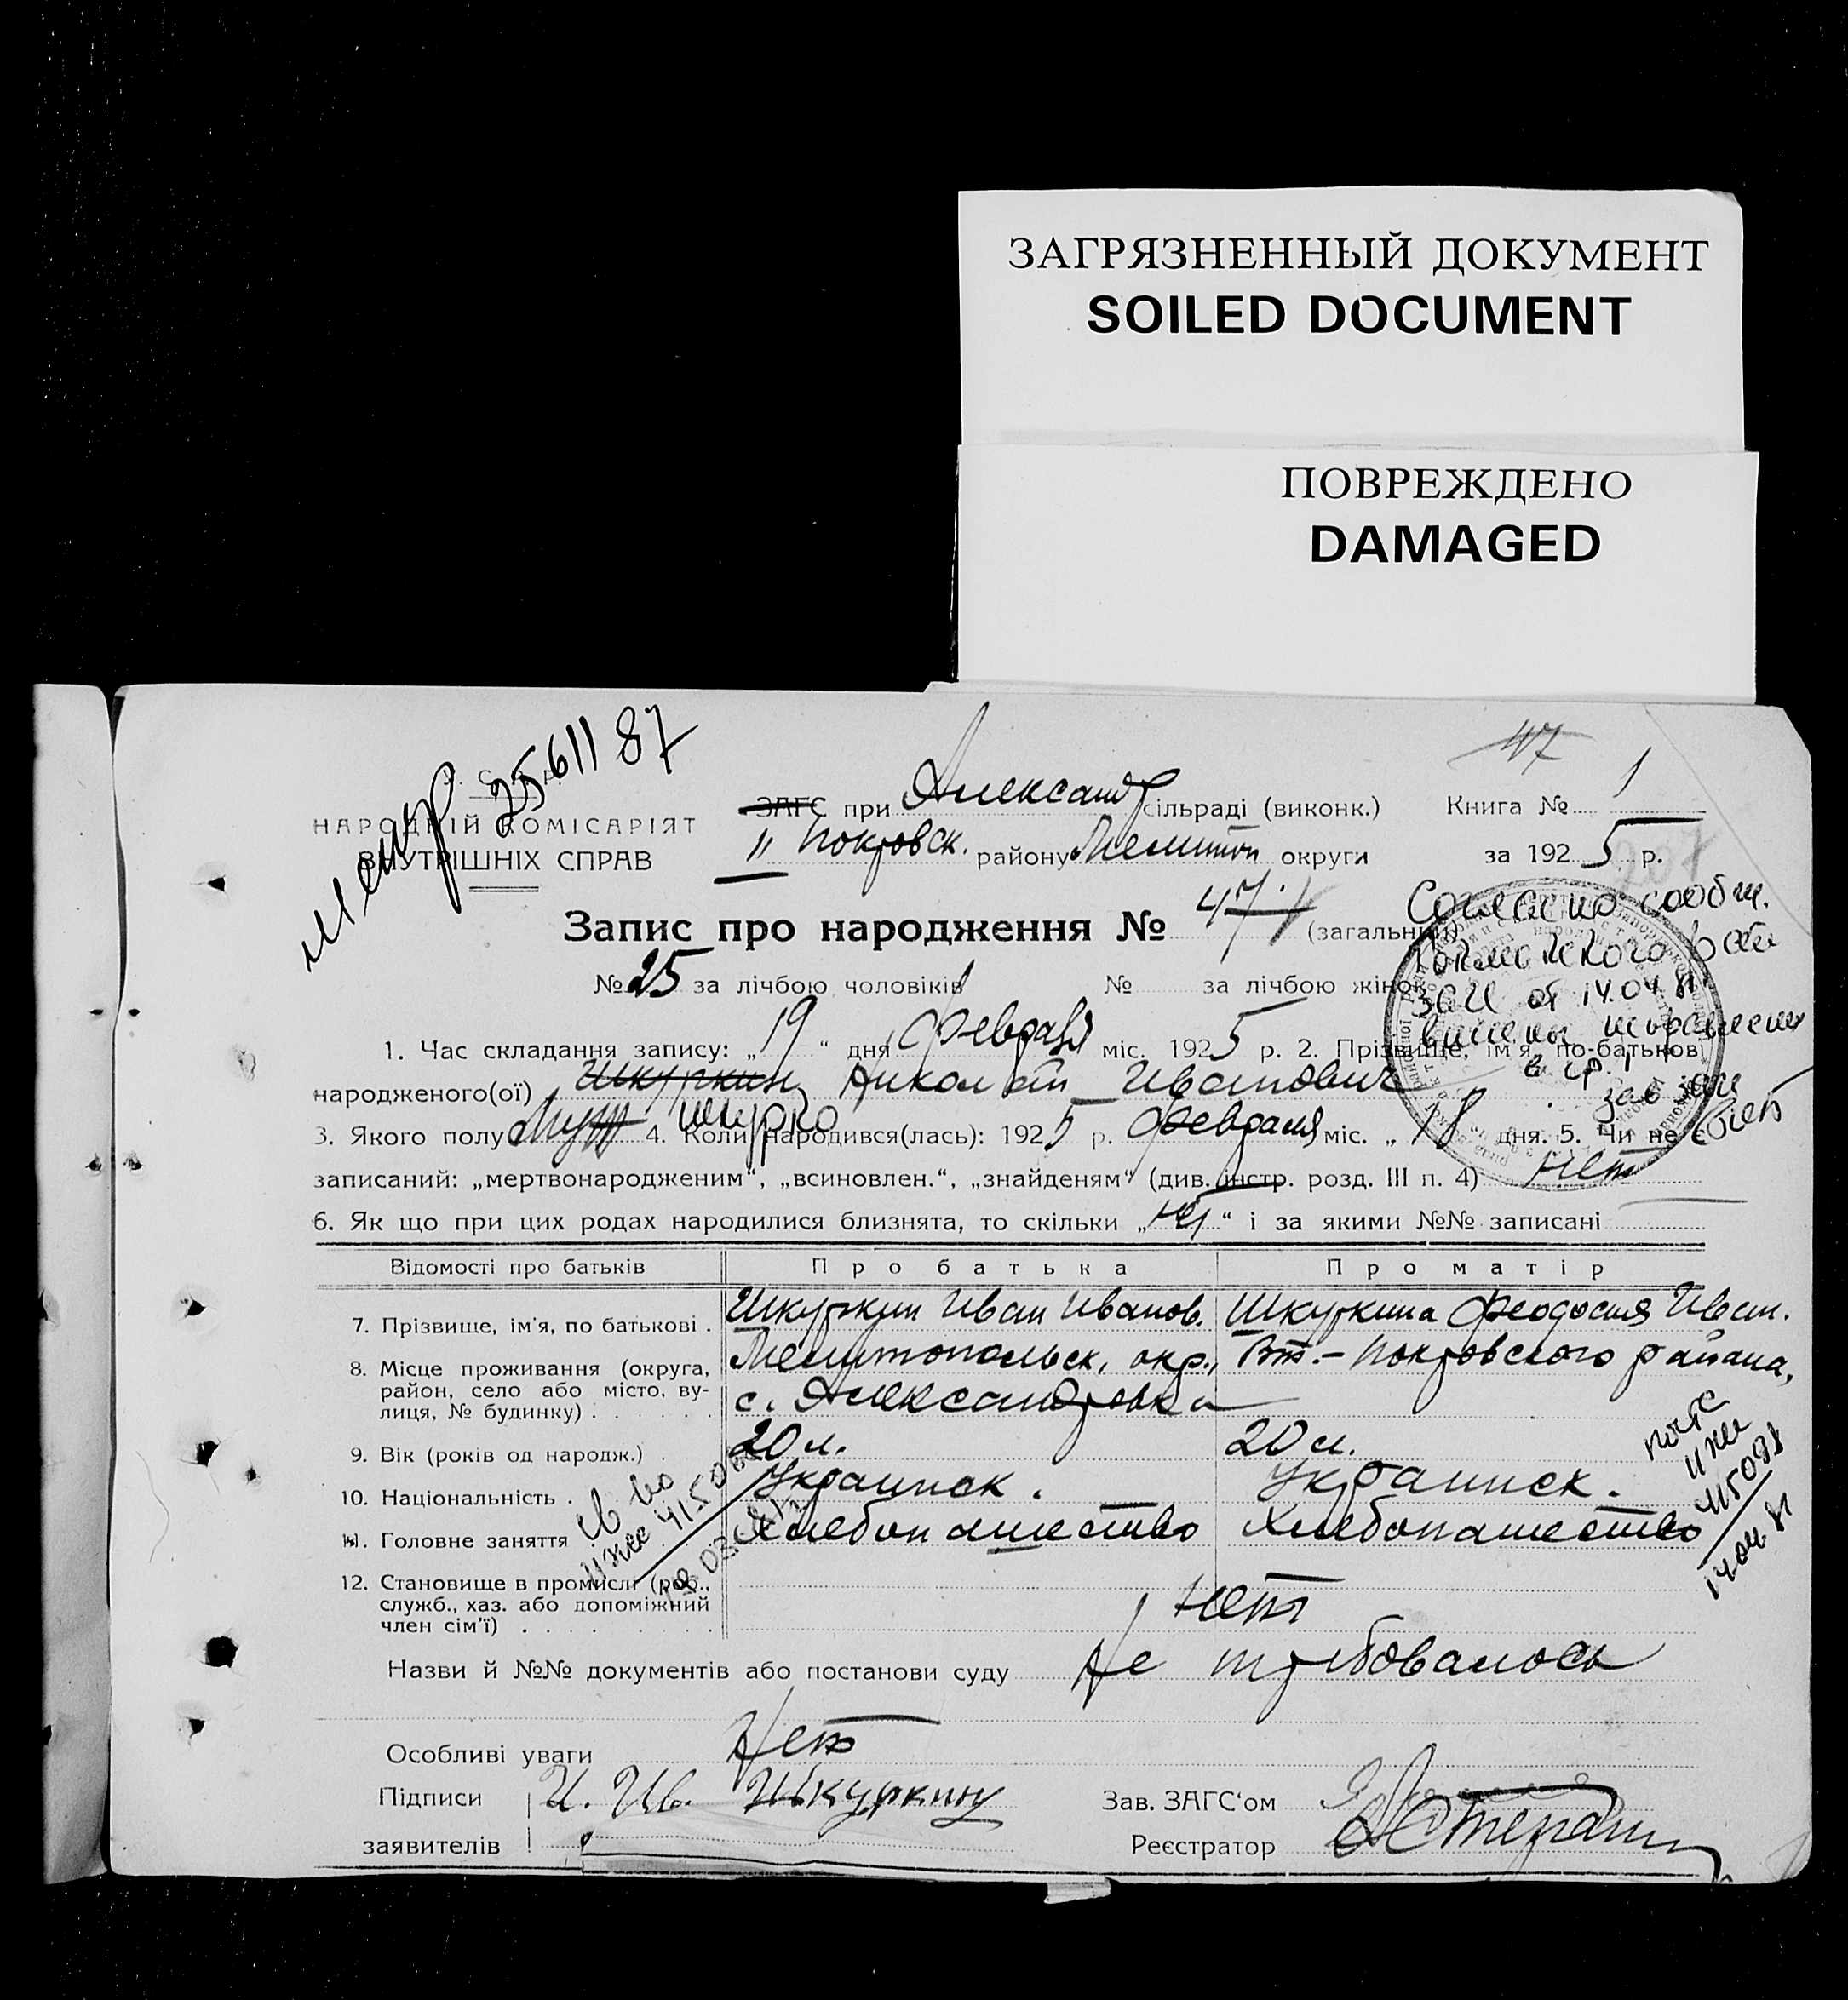 ЗАГРЯЗНЕННЫЙ ДОКУМЕНТ
SOILED DOCUMENT
ПОВРЕЖДЕНО
DAMAGED
47
25611 87
ЗАГС при Александр сільраді (виконк.) Книга № 1
НАРОДНІЙ КОМІСАРІЯТ
ВНУТРІШНІХ СПРАВ
II Покровск. району Мелитоп округи за 1925 р.
207
Запис про народження № 47 (загальний)
№ 25 за лічбою чоловіків № за лічбою жінок
Согласно сообщ.
Токмакского
загс от 14.04 81
в гр. 1
зав загс
1. Час складання запису: „19“ дня Февраля міс. 1925 р. 2. Прізвище, ім'я, по-батькові
народженого(ої) Шкуркин Николай Иванович
Шкурко
3. Якого полу Муж 4. Коли народився(лась): 1925 р. Февраля міс. „18“ дня. 5. Чи не є
записаний: „мертвонародженим“, „всиновлен.“, „знайденям“ (див. інстр. розд. III п. 4) Нет
6. Як що при цих родах народилися близнята, то скільки „Нет“ і за якими №№ записані
Відомості про батьків Про батька Про матір
7. Прізвище, ім'я, по батькові . Шкуркин Иван Иванов. Шкуркина Феодосия Иван.
8. Місце проживання (округа, район, село або місто, вулиця, № будинку) Мелитопольск. окр., Вт.-Покровского района,
с. Александровка
9. Вік (років од народж.) . 20 л. 20 л.
10. Національність . Украинск. Украинск.
11. Головне заняття Хлебопашество Хлебопашество
12. Становище в промислі (роб.,
служб., хаз. або допоміжний
член сім'ї) Нет
415098
14.04.81
Назви й №№ документів або постанови суду Не требовалось
Особливі уваги Нет
Підписи И. Ив. Шкуркину Зав. ЗАГС'ом
заявителів Реєстратор